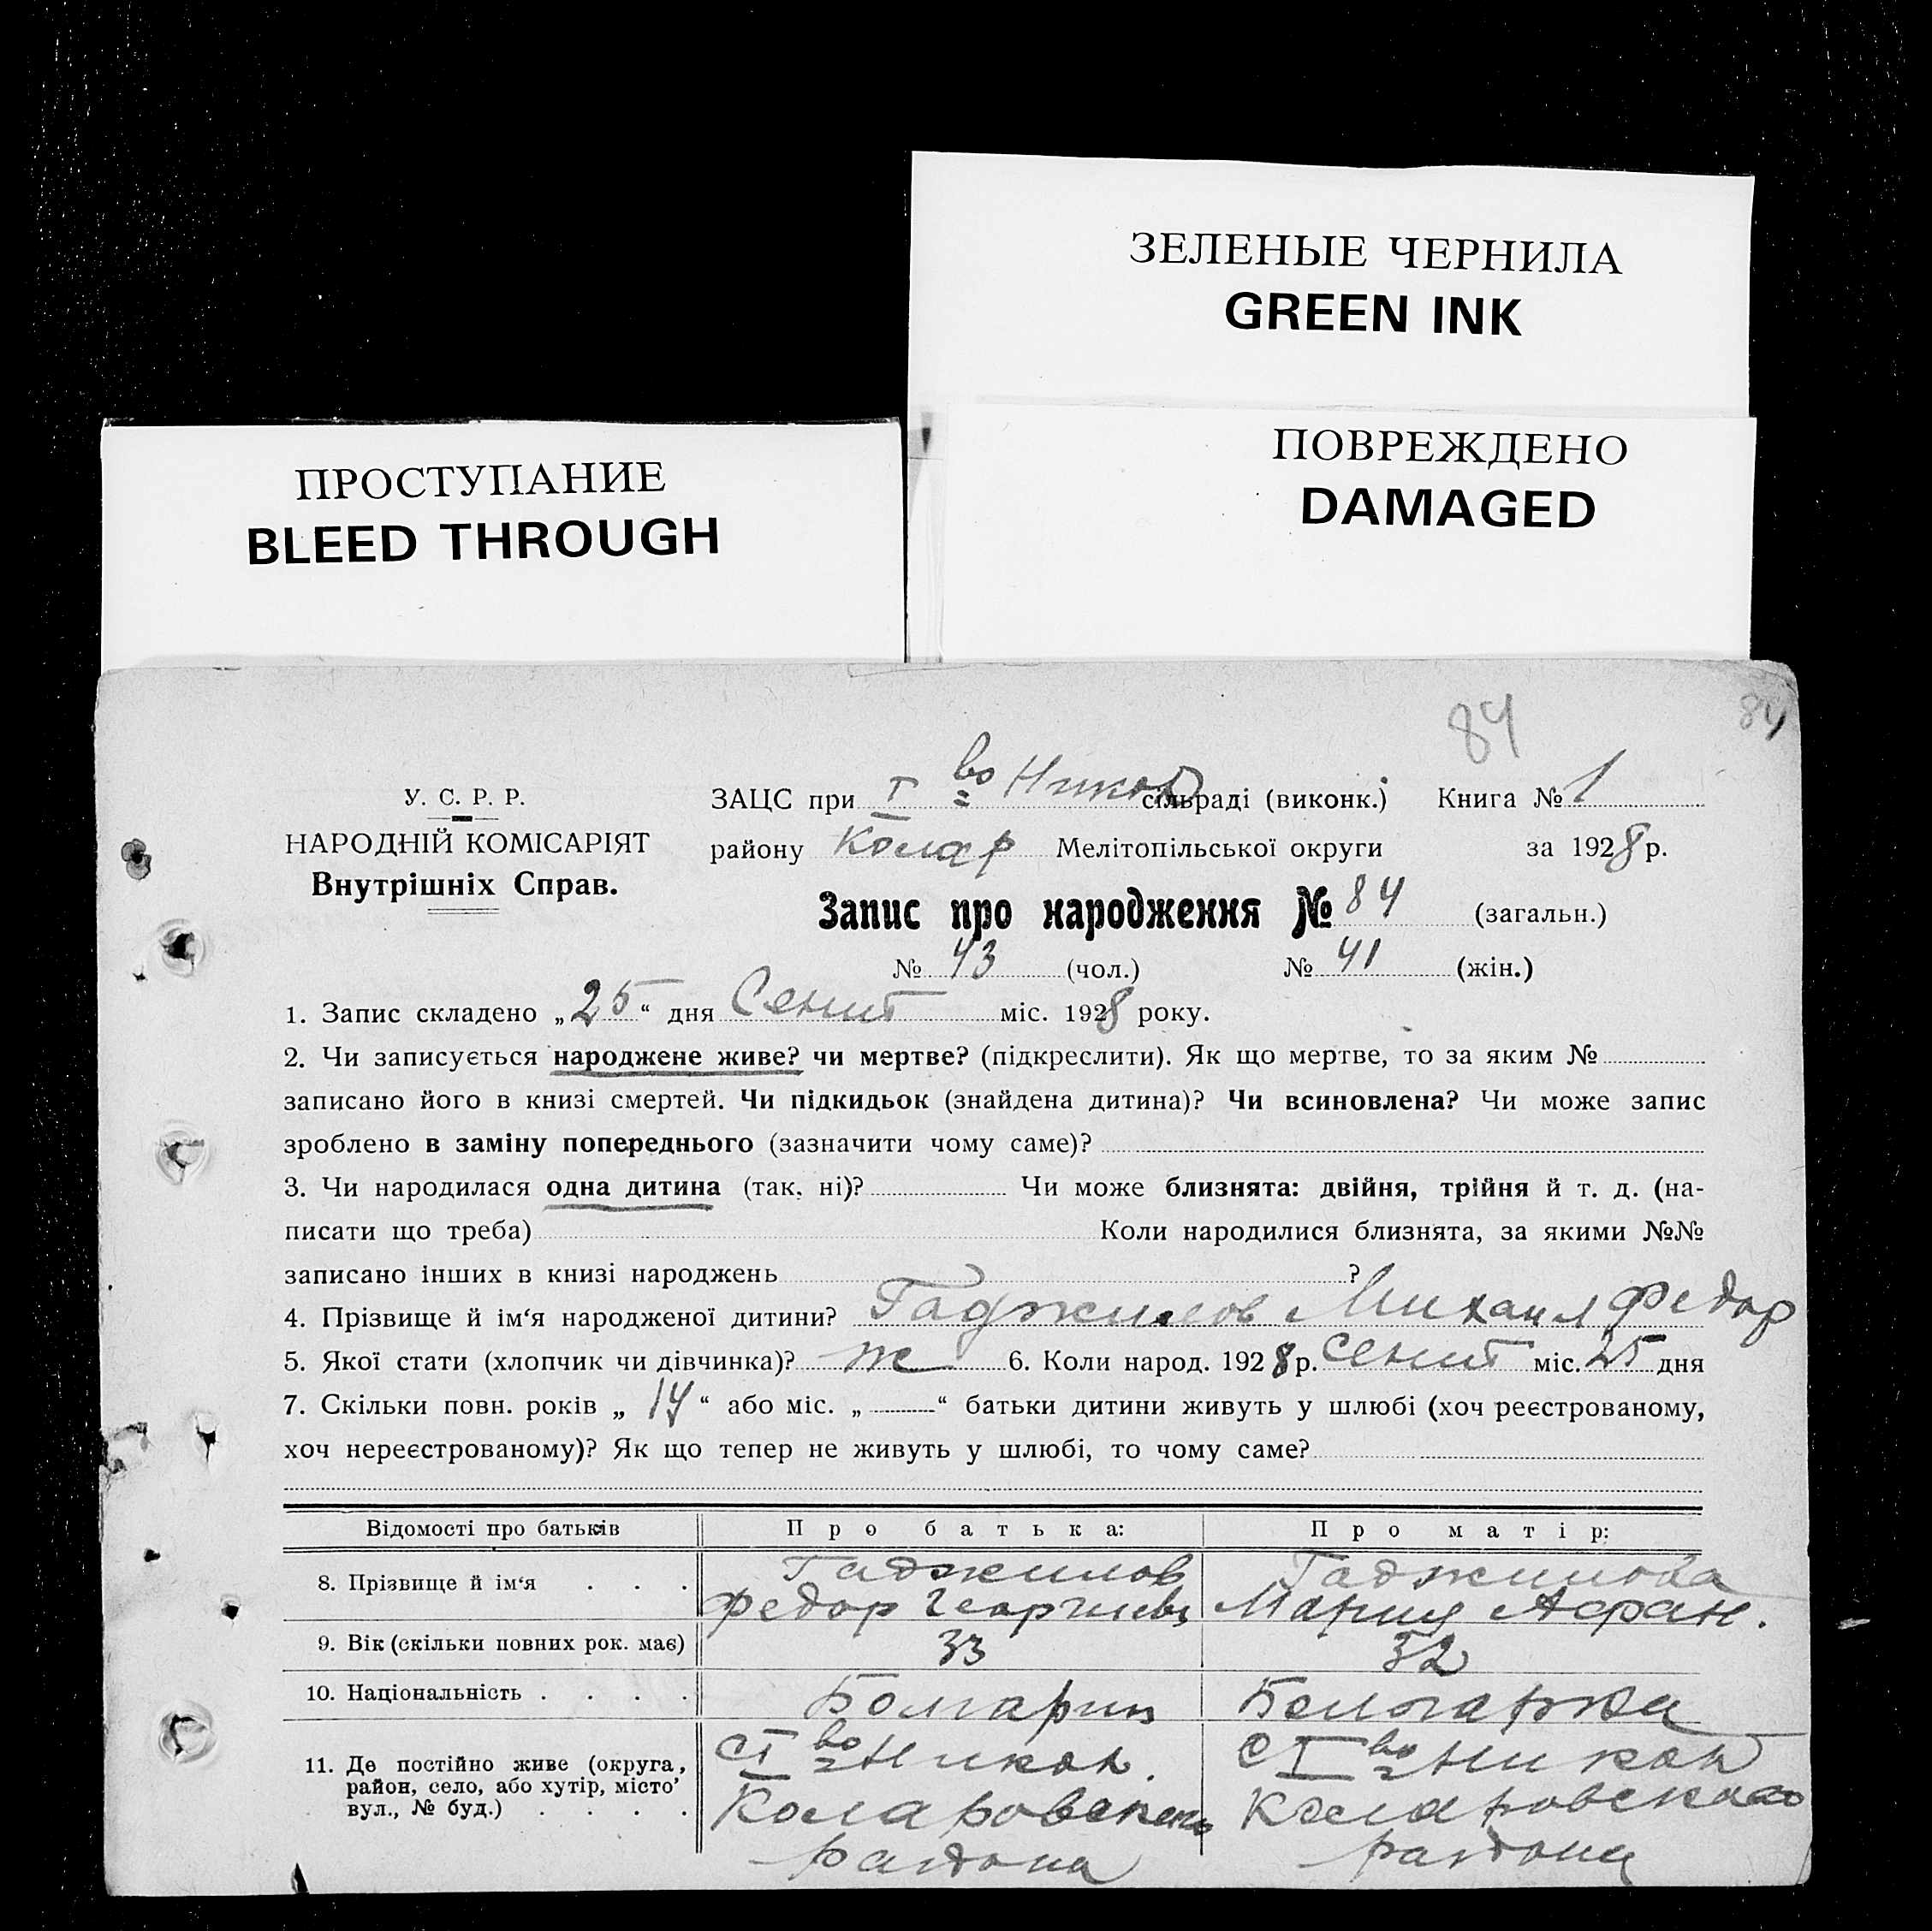 ЗЕЛЕНЫЕ ЧЕРНИЛА
GREEN INK
ПОВРЕЖДЕНО
DAMAGED
ПРОСТУПАНИЕ
BLEED THROUGH
84 84
У. С. Р. Р.
НАРОДНІЙ КОМІСАРІЯТ
Внутрішніх Справ.
ЗАЦС при I во Никол сільраді (виконк.) Книга № 1
району Колар Мелітопільської округи за 1928 р.
Запис про народження № 84 (загальн.)
№ 43 (чол.) № 41 (жін.)
1. Запис складено „25“ дня Сент міс. 1928 року.
2. Чи записується народжене живе? чи мертве? (підкреслити). Як що мертве, то за яким №
записано його в книзі смертей. Чи підкидьок (знайдена дитина)? Чи всиновлена? Чи може запис
зроблено в заміну попереднього (зазначити чому саме)?
3. Чи народилася одна дитина (так, ні)? Чи може близнята: двійня, трійня й т. д. (на-
писати що треба) Коли народилися близнята, за якими №№
записано інших в книзі народжень ?
4. Прізвище й ім‘я народженої дитини? Гаджилов Михаил Федор
5. Якої стати (хлопчик чи дівчинка)? м 6. Коли народ. 1928 р. Сент міс. 25 дня
7. Скільки повн. років „14“ або міс. „ “ батьки дитини живуть у шлюбі (хоч реєстрованому,
хоч нереєстрованому)? Як що тепер не живуть у шлюбі, то чому саме?
Відомості про батьків Про батька: Про матір:
8. Прізвище й ім‘я . . . Гаджилов Гаджилова
Федор Георгиев Мария Афан.
9. Вік (скільки повних рок. має) 33 32
10. Національність . . . . Болгарин Болгарка
11. Де постійно живе (округа, с I во Никол. с I во Никол
район, село, або хутір, місто’
вул., № буд.) . . . . Коларовского Коларовского
района района